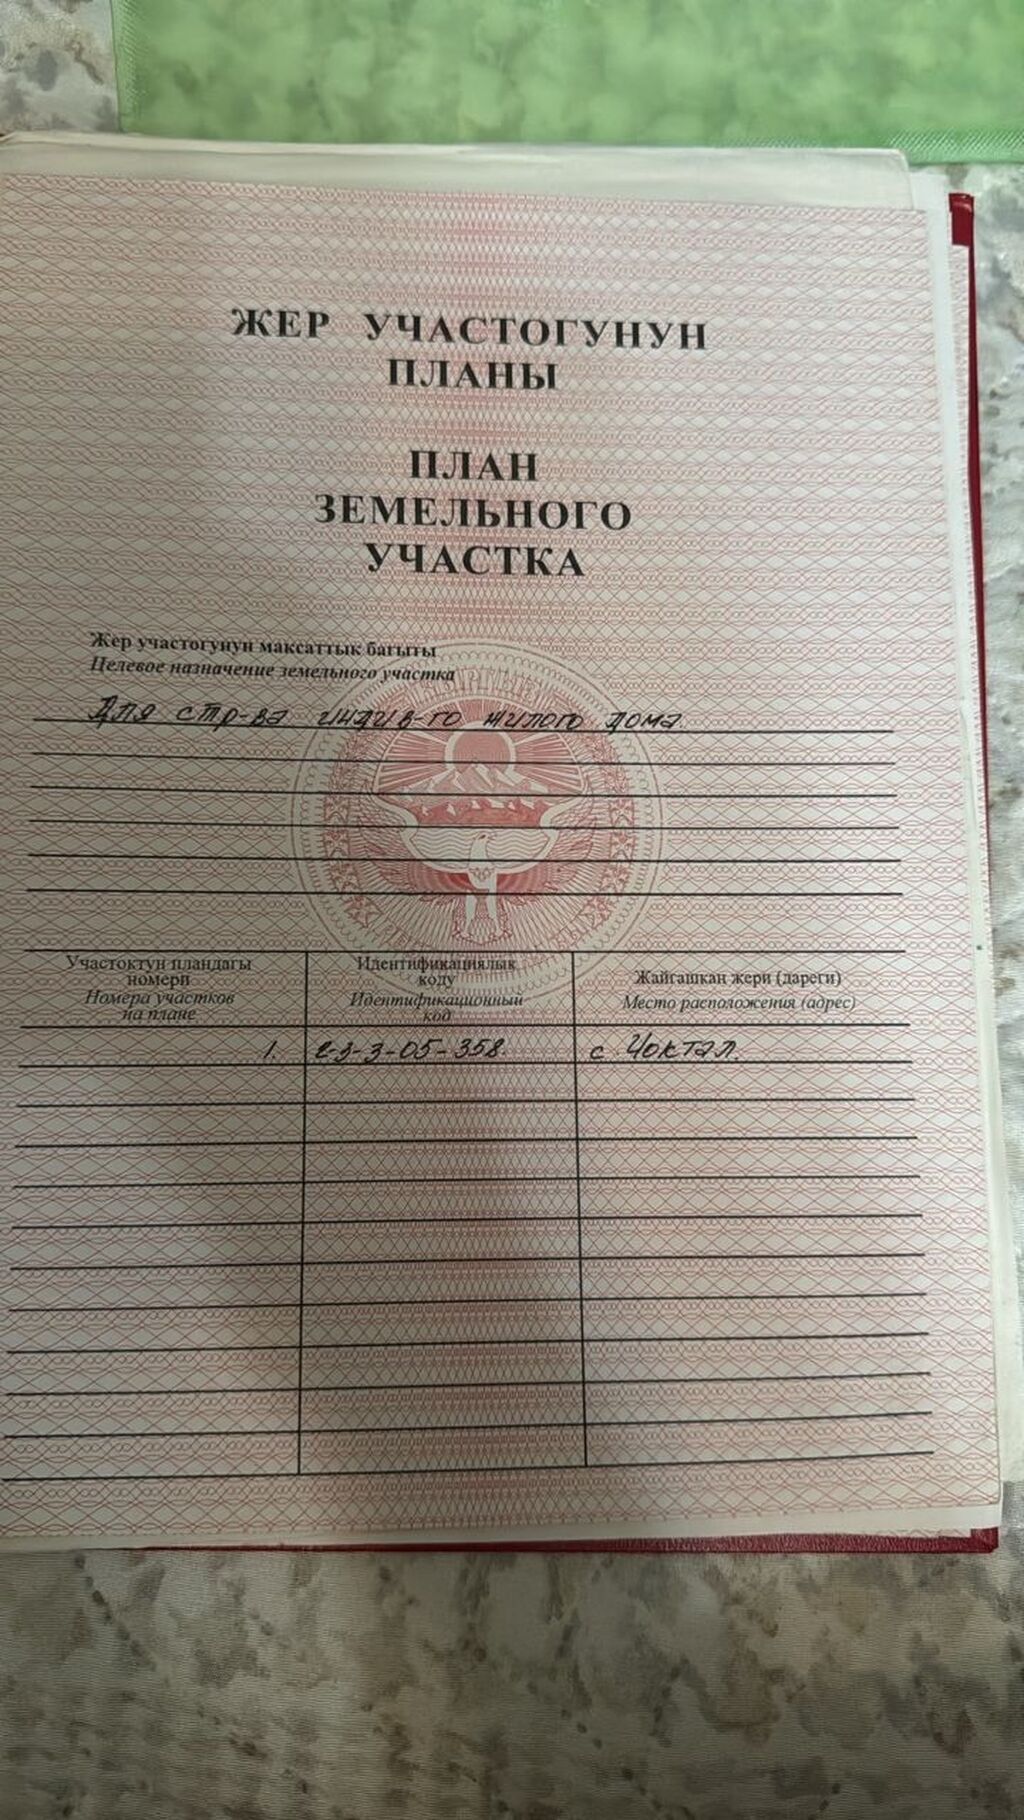 ЖЕР УЧАСТОГУНУН
ПЛАНЫ
ПЛАН
ЗЕМЕЛЬНОГО
УЧАСТКА
Жер участогунун максаттык багыты
Целевое назначение земельного участка
Для стр-ва индив-го жилого дома.
Участоктун пландагы
номери
Номера участков
на плане
Идентификациялык
коду
Идентификационный
код
Жайгашкан жери (дареги)
Место расположения (адрес)
1.
2-3-3-05-358.
с. Чоктал.